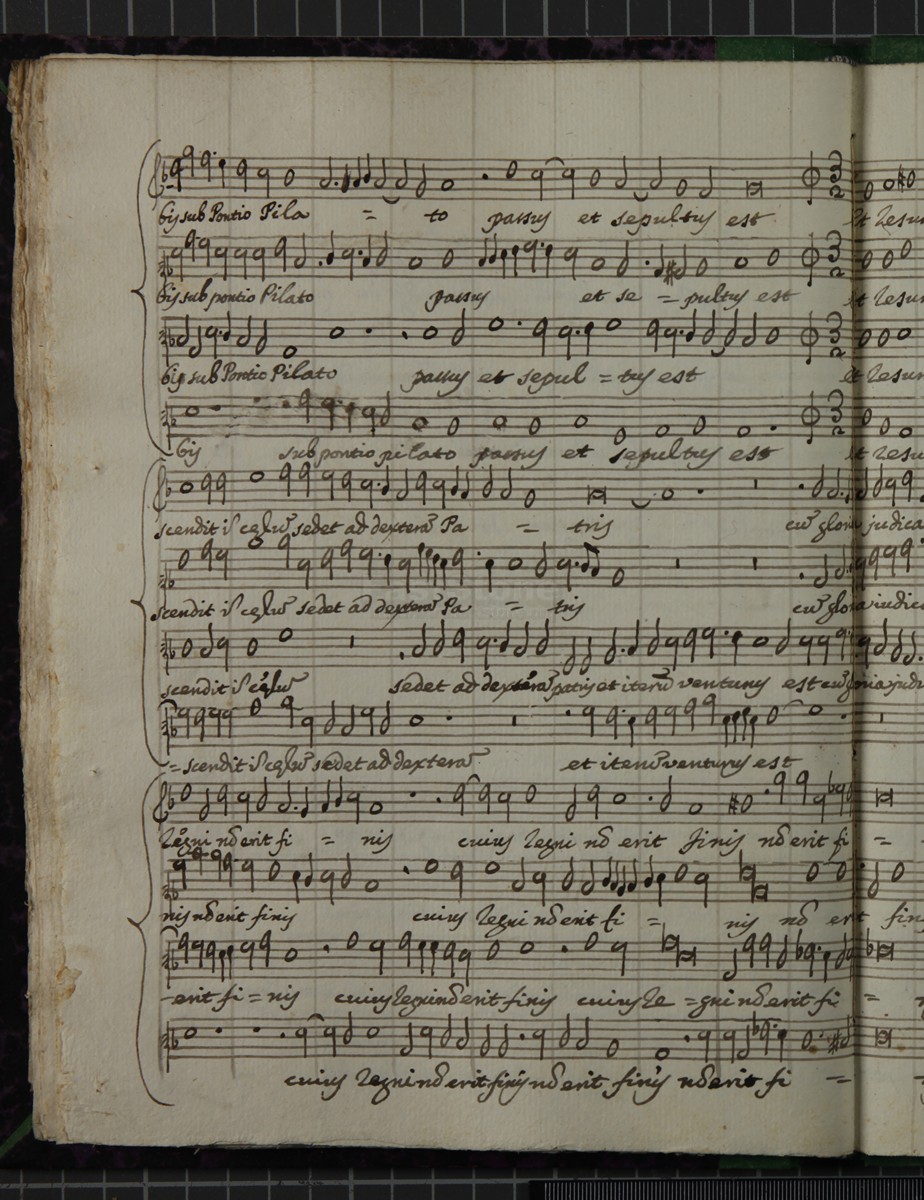 bis sub Pontio Pila = to passus et sepultus est Et Resu
bis sub pontio Pilato passus et se = pultus est et Resu
bis sub Pontio Pilato passus et sepul = tus est et Resu
bis sub pontio pilato passus et sepultus est et Resu
scendit i cęlũ sedet ad dexterã Pa = tris cũ gloria judica
scendit i cęlũ sedet ad dexterã Pa = tris cũ gloria iudica
scendit i cęlũ sedet ad dexterã patris et iterũ venturus est cũ gloria judi
= scendit i cęlũ sedet ad dexterã et iterũ venturus est
Regni nõ erit fi = nis cuius Regni nõ erit finis nõ erit fi =
nis nõ erit finis cuius Regni nõ erit fi = nis nõ erit fin
-erit fi = nis cuius Regni nõ erit finis cuius Re = gni nõ erit fi =
cuius Regni nõ erit finis nõ erit finis nõ erit fi =